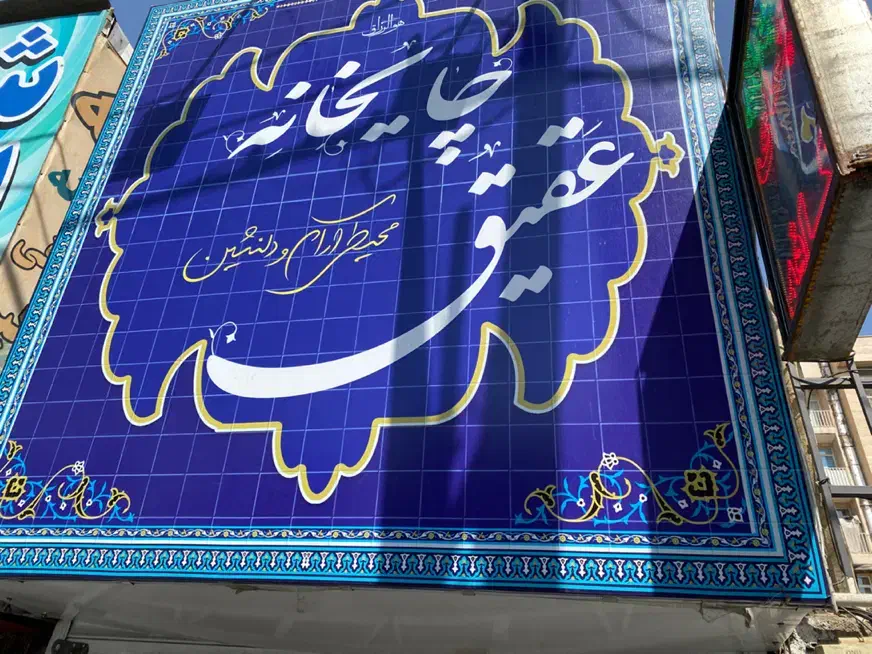 هوالرزاق
چایخانه
عقیق
محیطی آرام و دلنشین